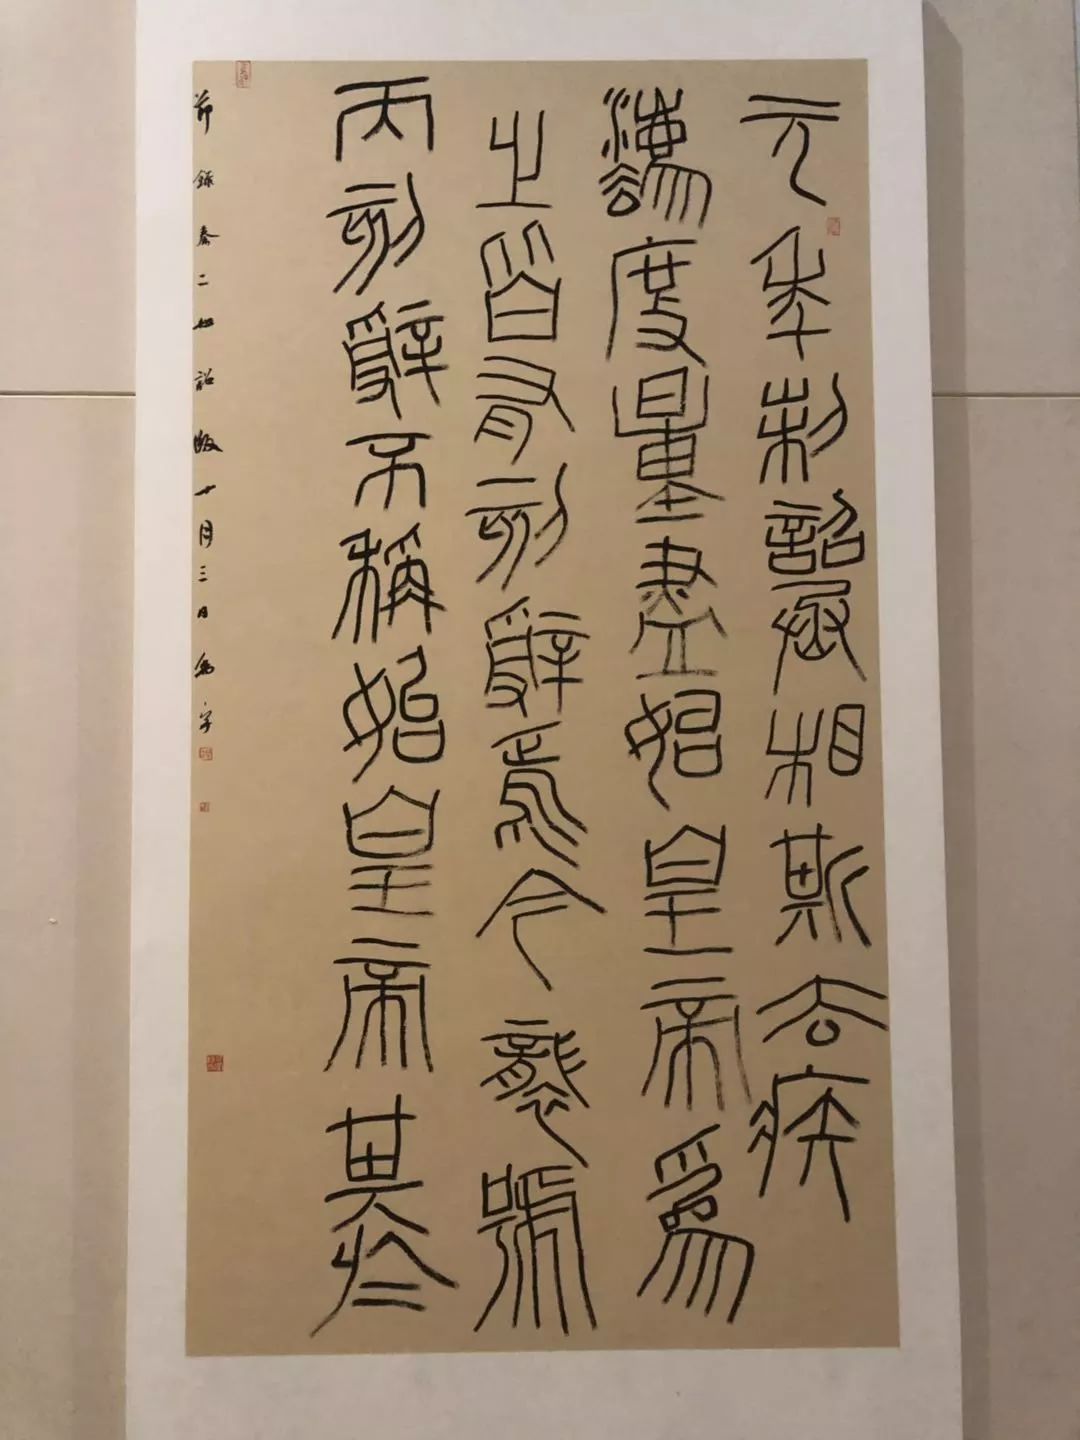 元年制詔丞相斯去疾
灋度量盡始皇帝爲
之皆有刻辭焉今襲號
而刻辭不稱始皇帝其於
節錄秦二世詔版十月三日